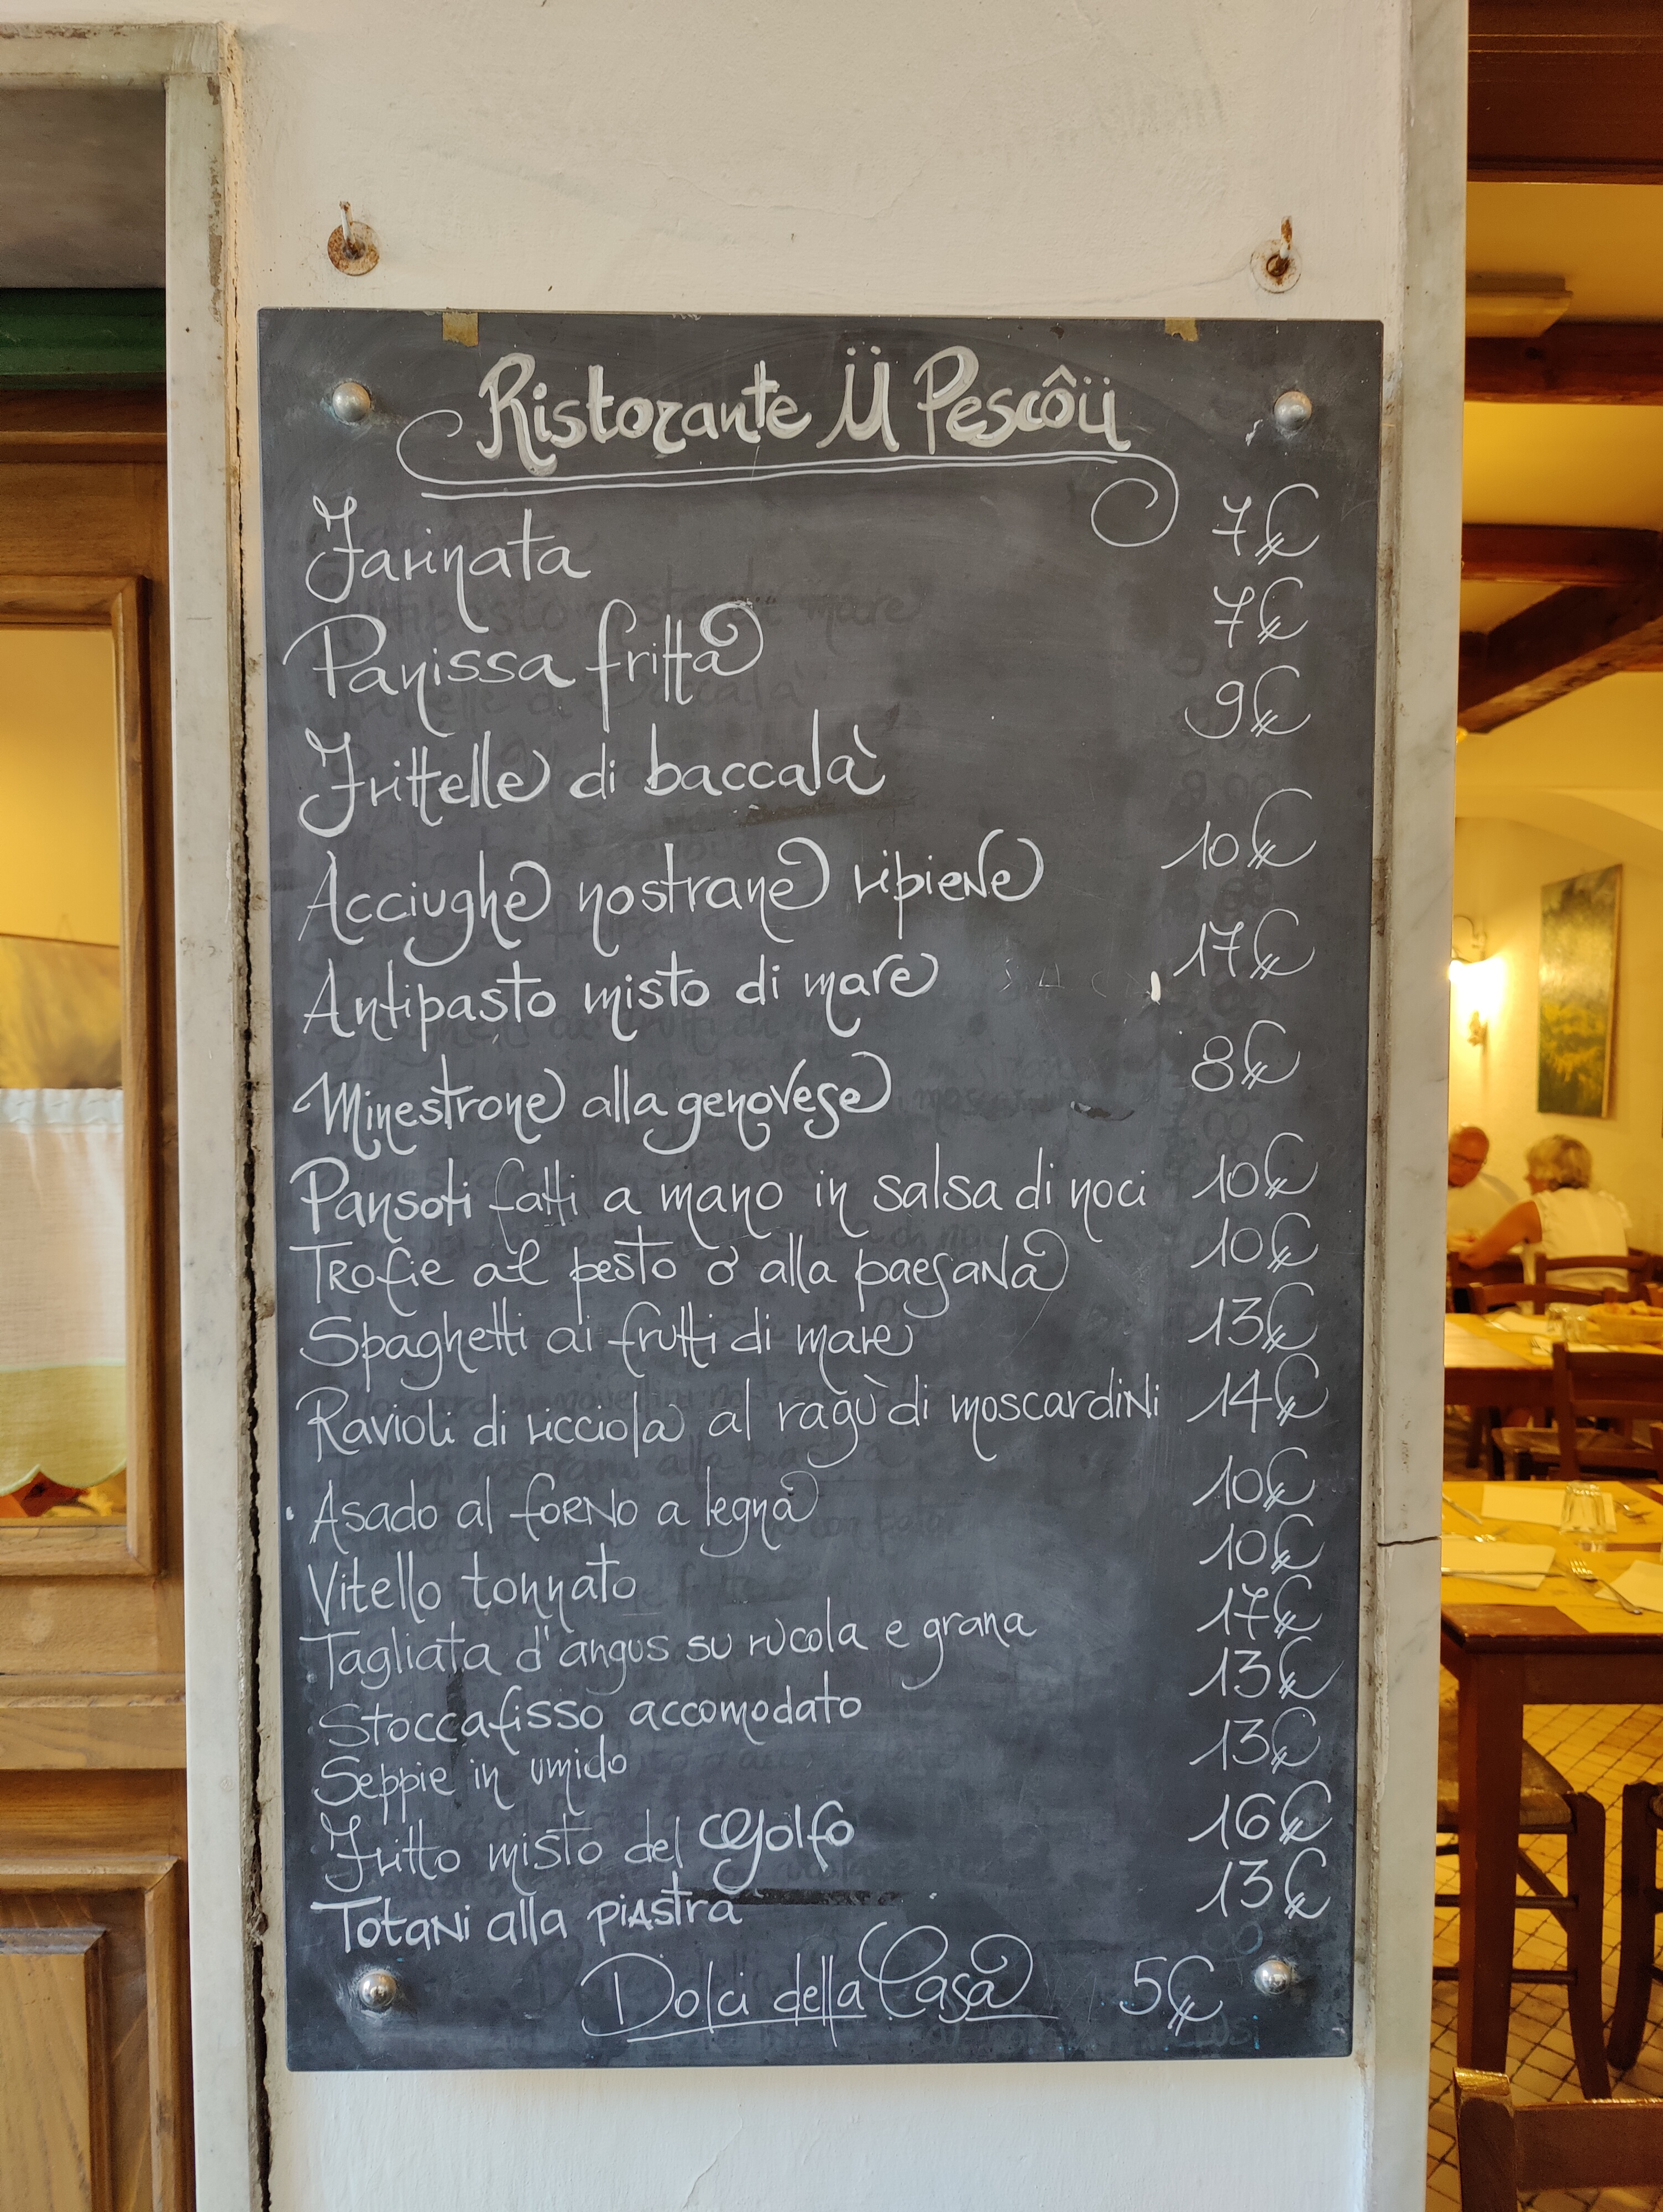 Ristorante Ü Pescôü
Farinata 7€
Panissa fritta 7€
Frittelle di baccalà 9€
Acciughe nostrane ripiene 10€
Antipasto misto di mare 17€
Minestrone alla genovese 8€
Pansoti fatti a mano in salsa di noci 10€
Trofie al pesto o alla paesana 10€
Spaghetti ai frutti di mare 13€
Ravioli di ricciola al ragù di moscardini 14€
Asado al forno a legna 10€
Vitello tonnato 10€
Tagliata d'angus su rucola e grana 17€
Stoccafisso accomodato 13€
Seppie in umido 13€
Fritto misto del golfo 16€
Totani alla piastra 13€
Dolci della Casa 5€